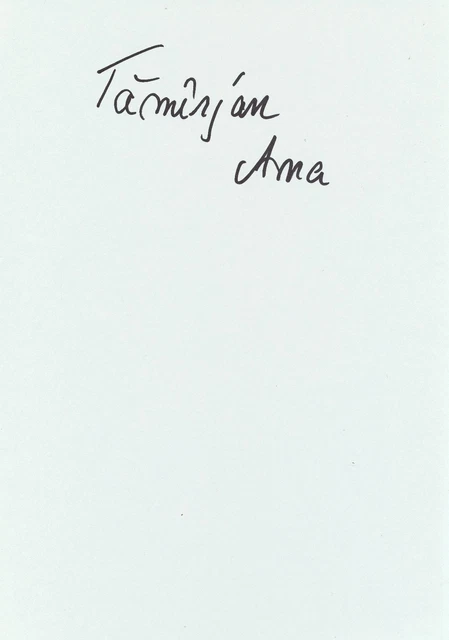 Tămîrjan
Ana